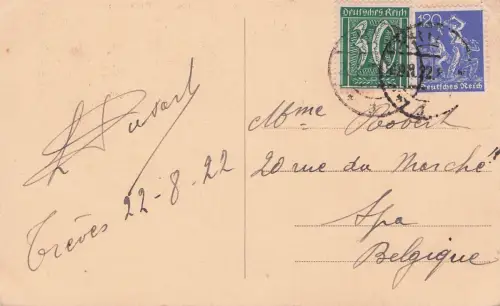 Deutsches Reich
30
120
Deutsches Reich
Trèves 22-8-22
Mme
20 rue du Marché
Spa
Belgique